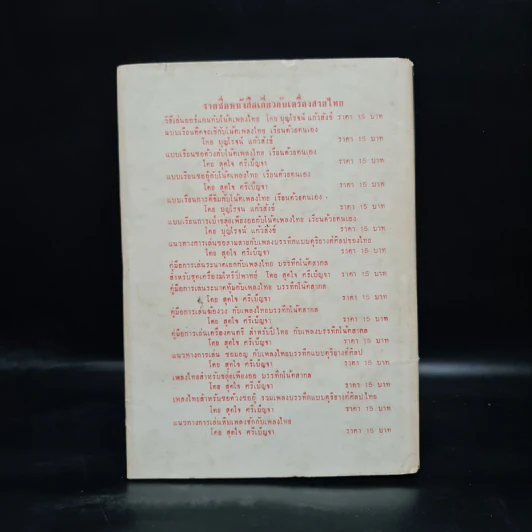 รายชื่อหนังสือเกี่ยวกับเครื่องสายไทย
วิธีเล่นออร์แกนกับโน๊ตเพลงไทย โดย บุญโรจน์ แก้วสังข์ ราคา 15 บาท
แบบเรียนดีดจะเข้กับโน๊ตเพลงไทย เรียนด้วยตนเอง
โดย บุญโรจน์ แก้วสังข์ ราคา 15 บาท
แบบเรียนซอด้วงกับโน๊ตเพลงไทย เรียนด้วยตนเอง
โดย สุดใจ ศรีเบ็ญจา ราคา 15 บาท
แบบเรียนซออู้กับโน๊ตเพลงไทย เรียนด้วยตนเอง
โดย สุดใจ ศรีเบ็ญจา ราคา 15 บาท
แบบเรียนการตีขิมกับโน๊ตเพลงไทย เรียนด้วยตนเอง
โดย บุญโรจน แก้วสังข์ ราคา 15 บาท
แบบเรียนการเป่าขลุ่ยเพียงออกับโน๊ตเพลงไทย เรียนด้วยตนเอง
โดย บุญโรจน์ แก้วสังข์ ราคา 15 บาท
แนวทางการเล่นซอสามสายกับเพลงบรรทึกแบบดุริยางค์ศิลปของไทย
โดย สุดใจ ศรีเบ็ญจา ราคา 15 บาท
คู่มือการเล่นระนาดเอกกับเพลงไทย บรรทึกโน๊ตสากล
สำหรับชุดเครื่องมโหรีปี่พาทย์ โดย สุดใจ ศรีเบ็ญจา ราคา 15 บาท
คู่มือการเล่นระนาดทุ้มกับเพลงไทย บรรทึกโน๊ตสากล
โดย สุดใจ ศรีเบ็ญจา ราคา 15 บาท
คู่มือการเล่นฆ้องวง กับเพลงไทยบรรทึกโน๊ตสากล
โดย สุดใจ ศรีเบ็ญจา ราคา 15 บาท
คู่มือการเล่นเครื่องดนตรี สำหรับปี่ไทย กับเพลงบรรทึกโน๊ตสากล
โดย สุดใจ ศรีเบ็ญจา ราคา 15 บาท
แนวทางการเล่น ซอมอญ กับเพลงไทยบรรทึกแบบดุริยางค์ศิลป
โดย สุดใจ ศรีเบ็ญจา ราคา 15 บาท
เพลงไทยสำหรับขลุ่ยเพียงออ บรรทึกโน๊ตสากล
โดย สุดใจ ศรีเบ็ญจา ราคา 15 บาท
เพลงไทยสำหรับซอด้วงซออู้ รวมเพลงบรรทึกแบบดุริยางค์ศิลปไทย
โดย สุดใจ ศรีเบ็ญจา ราคา 15 บาท
แนวทางการเล่นหีบเพลงชักกับเพลงไทย
โดย สุดใจ ศรีเบ็ญจา ราคา 15 บาท